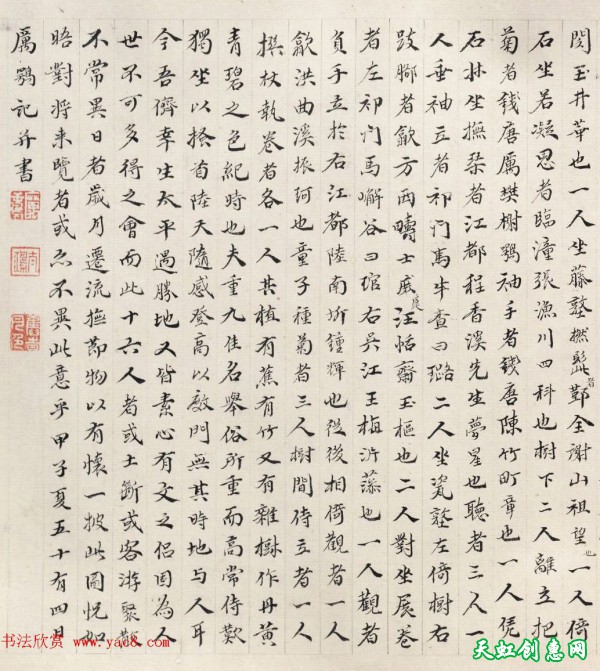 閔玉井華也一人坐藤墪撚髭者鄞全謝山祖望也一人倚
石坐若凝思者臨潼張漁川四科也樹下二人離立把
菊者錢唐厲樊榭鶚袖手者錢唐陳竹町章也一人凭
石牀坐撫琹者江都程香溪先生夢星也聽者三人一
人垂袖立者祁門馬半查曰璐二人坐瓷墪左倚樹右
跂腳者歙方西疇士庶汪恬齋玉樞也二人對坐展卷
者左祁門馬嶰谷曰琯右吳江王梅沜藻也一人觀者
負手立於右江都陸南圻鍾輝也從後相倚觀者一人
歙洪曲溪振珂也童子種菊者三人樹間侍立者一人
撰杖執卷者各一人其植有蕉有竹又有雜樹作丹黃
青碧之色紀時也夫重九佳名舉俗所重而高常侍歎
獨坐以搔首陸天隨感登高以欬門無其時地與人耳
今吾儕幸生太平遇勝地又皆素心有文之侶固為人
世不可多得之會而此十六人者或土斷或客游聚散
不常異日者歲月遷流撫節物以有懷一披此圖怳如
晤對將來覽者或亦不異此意乎甲子夏五十有四日
厲鶚記并書
书法欣赏 www.yac8.com
天虹创惠网